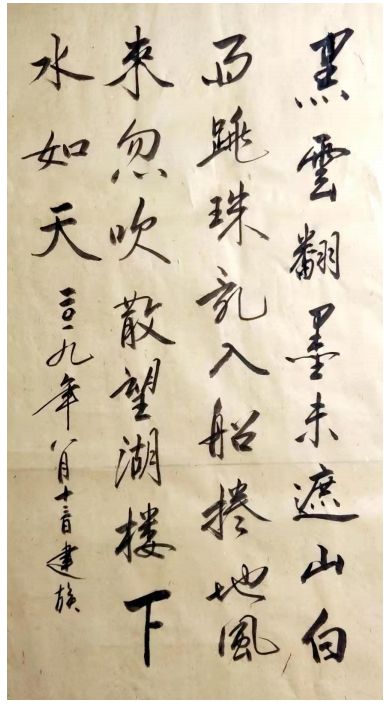 黑雲翻墨未遮山白
雨跳珠乱入船捲地風
來忽吹散望湖楼下
水如天 二〇一九年八月十 建族